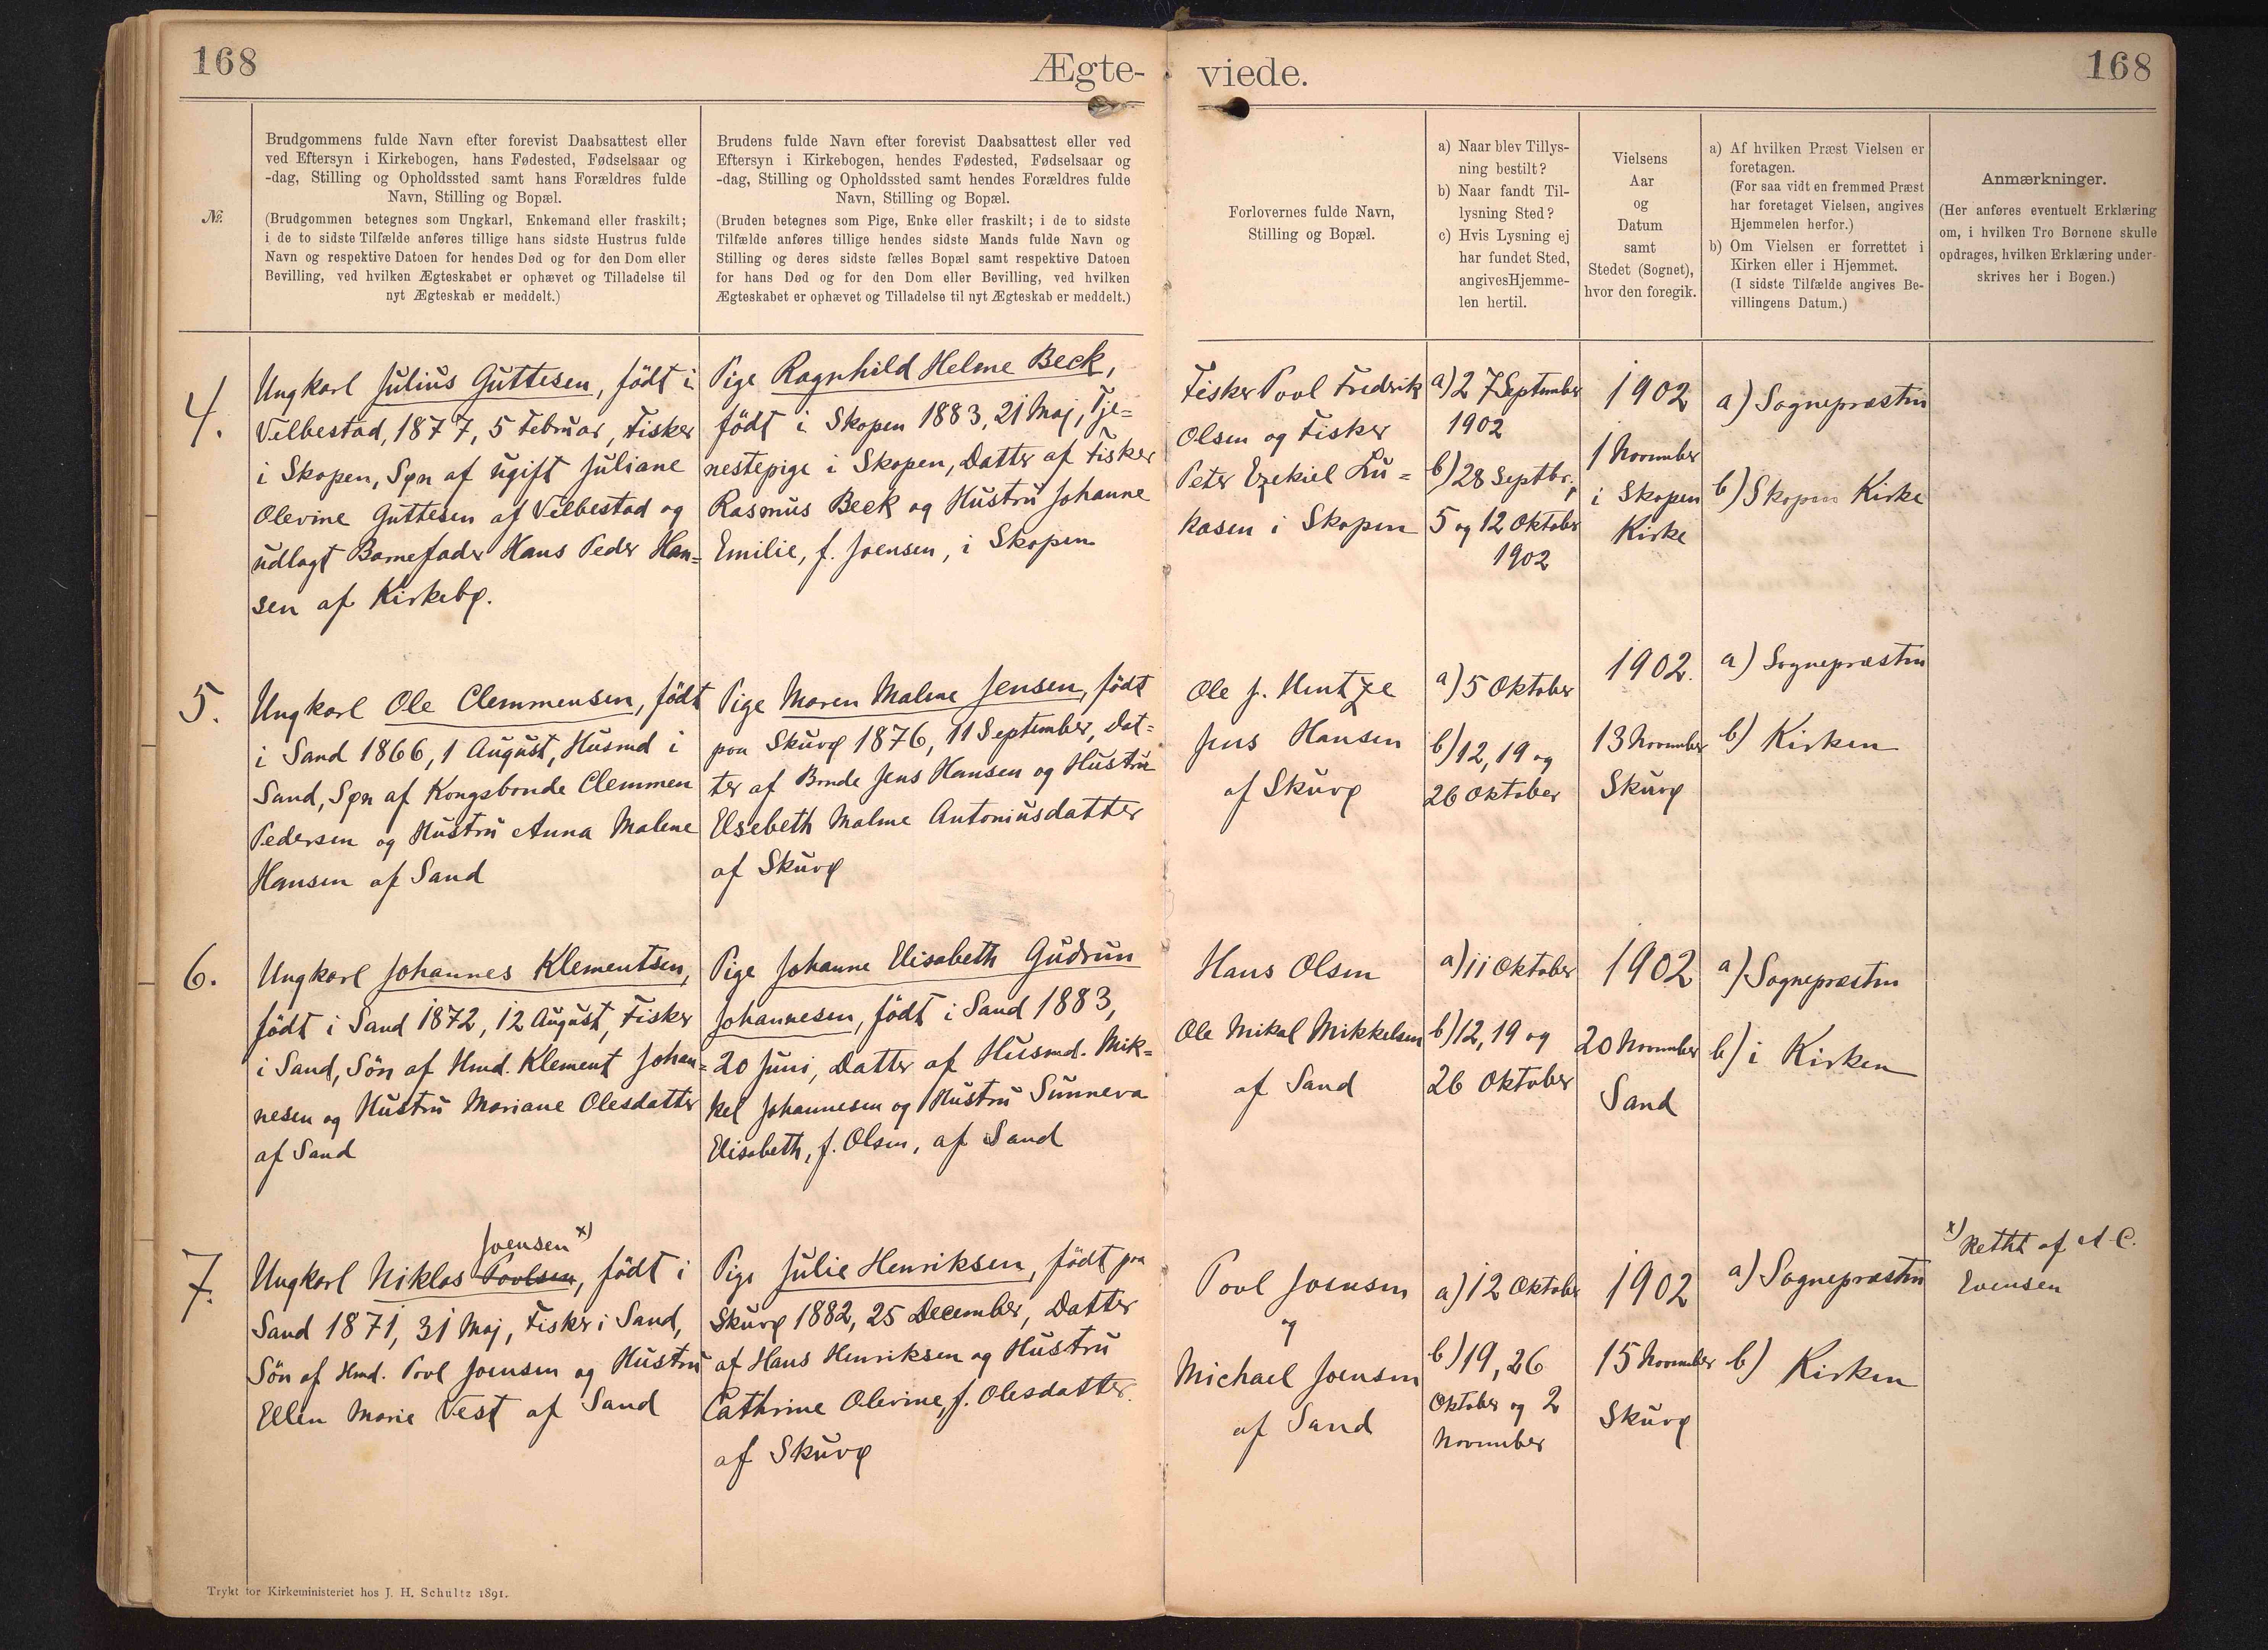 168
Ægte-
viede.
168
№.
Brudgommens fulde Navn efter forevist Daabsattest eller
ved Eftersyn i Kirkebogen, hans Fødested, Fødselsaar og
-dag, Stilling og Opholdssted samt hans Forældres fulde
Navn, Stilling og Bopæl.
(Brudgommen betegnes som Ungkarl, Enkemand eller fraskilt;
i de to sidste Tilfælde anføres tillige hans sidste Hustrus fulde
Navn og respektive Datoen for hendes Død og for den Dom eller
Bevilling, ved hvilken Ægteskabet er ophævet og Tilladelse til
nyt Ægteskab er meddelt.)
Brudens fulde Navn efter forevist Daabsattest eller ved
Eftersyn i Kirkebogen, hendes Fødested, Fødselsaar og
-dag, Stilling og Opholdssted samt hendes Forældres fulde
Navn, Stilling og Bopæl.
(Bruden betegnes som Pige, Enke eller fraskilt; i de to sidste
Tilfælde anføres tillige hendes sidste Mands fulde Navn og
Stilling og deres sidste fælles Bopæl samt respektive Datoen
for hans Død og for den Dom eller Bevilling, ved hvilken
Ægteskabet er ophævet og Tilladelse til nyt Ægteskab er meddelt.)
Forlovernes fulde Navn,
Stilling og Bopæl.
a) Naar blev Tillys-
ning bestilt?
b) Naar fandt Til-
lysning Sted?
c) Hvis Lysning ej
har fundet Sted,
angives Hjemme-
len hertil.
Vielsens
Aar
og
Datum
samt
Stedet (Sognet),
hvor den foregik.
a) Af hvilken Præst Vielsen er
foretagen.
(For saa vidt en fremmed Præst
har foretaget Vielsen, angives
Hjemmelen herfor.)
b) Om Vielsen er forrettet i
Kirken eller i Hjemmet.
(I sidste Tilfælde angives Be-
villingens Datum.)
Anmærkninger.
(Her anføres eventuelt Erklæring
om, i hvilken Tro Børnene skulle
opdrages, hvilken Erklæring under-
skrives her i Bogen.)
4.
Ungkarl Julius Guttesen, født i
Velbestad, 1877, 5 Februar, Fisker
i Skopen, Søn af ugift Juliane
Olevine Guttesen af Velbestad og
udlagt Barnefader Hans Peder Han=
sen af Kirkebø.
Pige Ragnhild Helene Beck,
født i Skopen 1883, 21 Maj, Tje=
nestepige i Skopen, Datter af Fisker
Rasmus Beck og Hustru Johanne
Emilie, f. Joensen, i Skopen
Fisker Poul Fredrik
Olsen og Fisker
Peter Ezekiel Lu=
kasen i Skopen
a) 27 September
1902
b) 28 Septbr.,
5 og 12 Oktober
1902
1902
1 November
i Skopen
Kirke
a) Sognepræsten
b) Skopen Kirke
5.
Ungkarl Ole Clemmensen, født
i Sand 1866, 1 August, Husmd i
Sand, Søn af Kongsbonde Clemmen
Pedersen og Hustru Anna Malene
Hansen af Sand
Pige Maren Malene Jensen, født
paa Skuvø 1876, 11 September, Dat=
ter af Bonde Jens Hansen og Hustru
Elsebeth Malene Antoniusdatter
af Skuvø
Ole J. Hentze
Jens Hansen
af Skuvø
a) 5 Oktober
b) 12, 19 og
26 Oktober
1902.
13 November
Skuvø
a) Sognepræsten
b) Kirken
6.
Ungkarl Johannes Klementsen,
født i Sand 1872, 12 August, Fisker
i Sand, Søn af Hmd. Klement Johan=
nesen og Hustru Mariane Olesdatter
af Sand
Pige Johanne Elisabeth Gudrun
Johannesen, født i Sand 1883,
20 Juni, Datter af Husmd. Mik=
kel Johannesen og Hustru Sunneva
Elisabeth, f. Olsen, af Sand
Hans Olsen
Ole Mikal Mikkelsen
af Sand
a) 11 Oktober
b) 12, 19 og
26 Oktober
1902
20 November
Sand
a) Sognepræsten
b) i Kirken
7.
Joensen x)
Ungkarl Niklas Poulsen, født i
Sand 1871, 31 Maj, Fisker i Sand,
Søn af Hmd. Poul Joensen og Hustru
Ellen Marie Vest af Sand
Pige Julie Henriksen, født paa
Skuvø 1882, 25 December, Datter
af Hans Henriksen og Hustru
Cathrine Olevine, f. Olesdatter.
af Skuvø
Poul Joensen
og
Michael Joensen
af Sand
a) 12 Oktober
b) 19, 26
Oktober og 2
November
1902
15 November
Skuvø
a) Sognepræsten
b) Kirken
x) Rettet af A C.
Evensen
Trykt for Kirkeministeriet hos J. H. Schultz 1891.